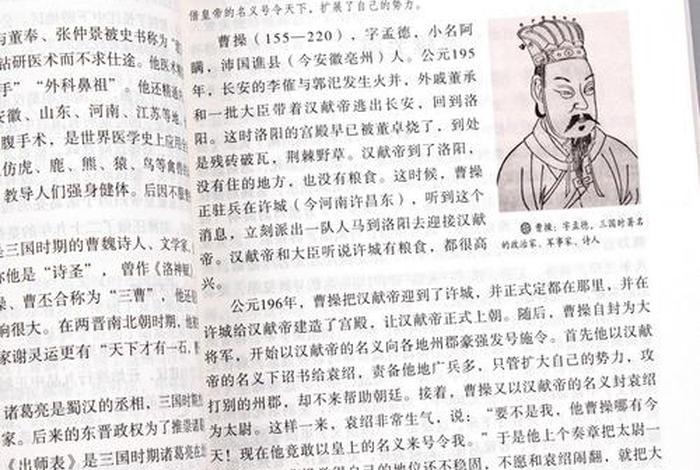 与董奉、张仲景被史书称为“建
钻研医术而不求仕途。他医术
手”“外科鼻祖”。他还精通
安徽、山东、河南、江苏等地
腹手术，是世界医学史上应用
仿虎、鹿、熊、猿、鸟等禽
教导人们强身健体。后因不
是三国时期的曹魏诗人、文学家，
你他是“诗圣”，曾作《洛神
操、曹丕合称为“三曹”，他还
响很大。在两晋南北朝时期，他
家谢灵运更有“天下才有一石，
诸葛亮是蜀汉的丞相，三国时期
家。后来的东晋政权为了推崇诸葛
《出师表》是三国时期诸葛亮
借皇帝的名义号令天下，扩展了自己的势力。
曹操（155—220），字孟德，小名阿
瞒，沛国谯县（今安徽亳州）人。公元195
年，长安的李傕与郭汜发生火并，外戚董承
和一批大臣带着汉献帝逃出长安，回到洛
阳。这时洛阳的宫殿早已被董卓烧了，到处
是残砖破瓦，荆棘野草。汉献帝到了洛阳，
没有住的地方，也没有粮食。这时候，曹操
正驻兵在许城（今河南许昌东），听到这个
消息，立刻派出一队人马到洛阳去迎接汉献
帝。汉献帝和大臣听说许城有粮食，都很高
兴。
曹操：字孟德，三国时著名
的政治家、军事家、诗人
公元196年，曹操把汉献帝迎到了许城，并正式定都在那里，并在
许城给汉献帝建造了宫殿，让汉献帝正式上朝。随后，曹操自封为大
将军，开始以汉献帝的名义向各地州郡豪强发号施令。首先他以汉献
帝的名义下诏书给袁绍，责备他地广兵多，只管扩大自己的势力，攻
打别的州郡，却不来帮助朝廷。接着，曹操又以汉献帝的名义封袁绍
为太尉。这样一来，袁绍非常生气，说：“要不是我，他曹操哪有今
天！现在他竟敢以皇上的名义来号令我。”于是他上个奏章把太尉一
自己的地位还不稳固，不愿和袁绍闹翻，就把大